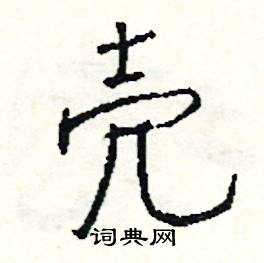 壳
词典网